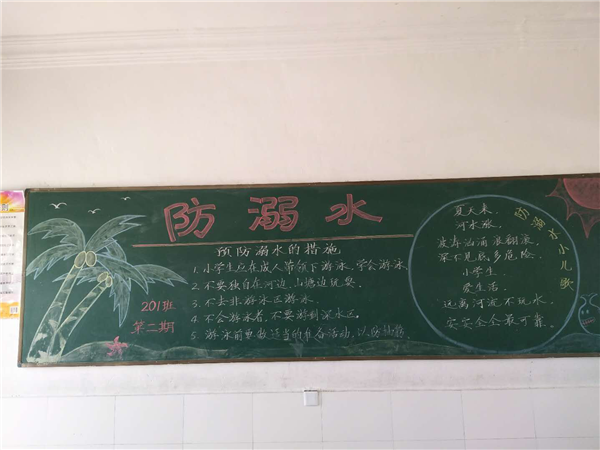 防溺水
预防溺水的措施
1.小学生应在成人带领下游泳,学会游泳
2.不要独自在河边、山塘边玩耍。
3.不去非游泳区游泳。
4.不会游泳者,不要游到深水区。
5.游泳前要做适当的准备活动,以防抽筋。
201班
第二期
防溺水小儿歌
夏天来,
河水涨,
波涛汹涌浪翻滚,
深不见底,多危险。
小学生
爱生活,
远离河流不玩水,
安安全全最可靠。